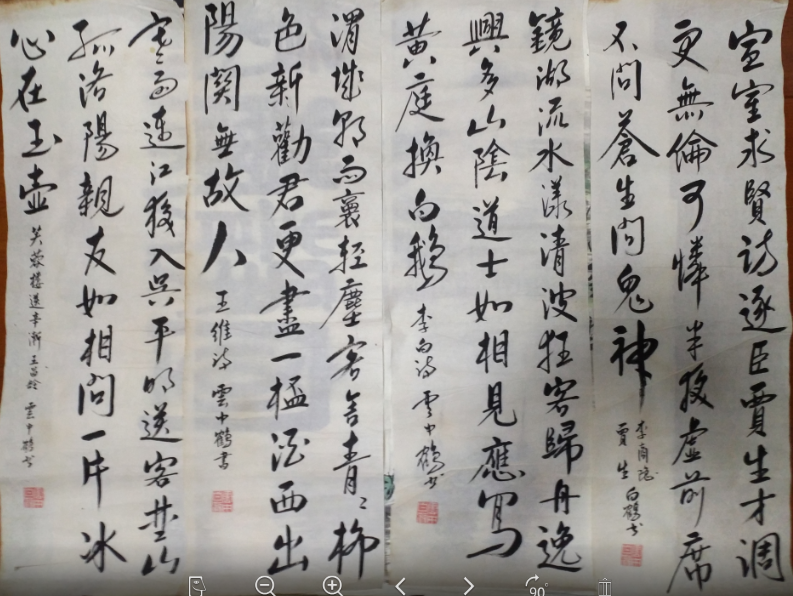 宣室求賢訪逐臣賈生才調
更無倫可憐半夜虛前席
不問蒼生問鬼神
李商隱
賈生 白鶴书
鏡湖流水漾清波狂客歸舟逸
興多山陰道士如相見應寫
黃庭換白鵝 李白詩 雲中鶴书
渭城朝雨裛輕塵客舍青〻柳
色新勸君更盡一桮酒西出
陽関無故人 王維詩 雲中鶴書
寒雨連江夜入吳平明送客楚山
孤洛陽親友如相問一片冰
心在玉壺 芙蓉樓送辛漸 王昌齡 雲中鶴书
90°